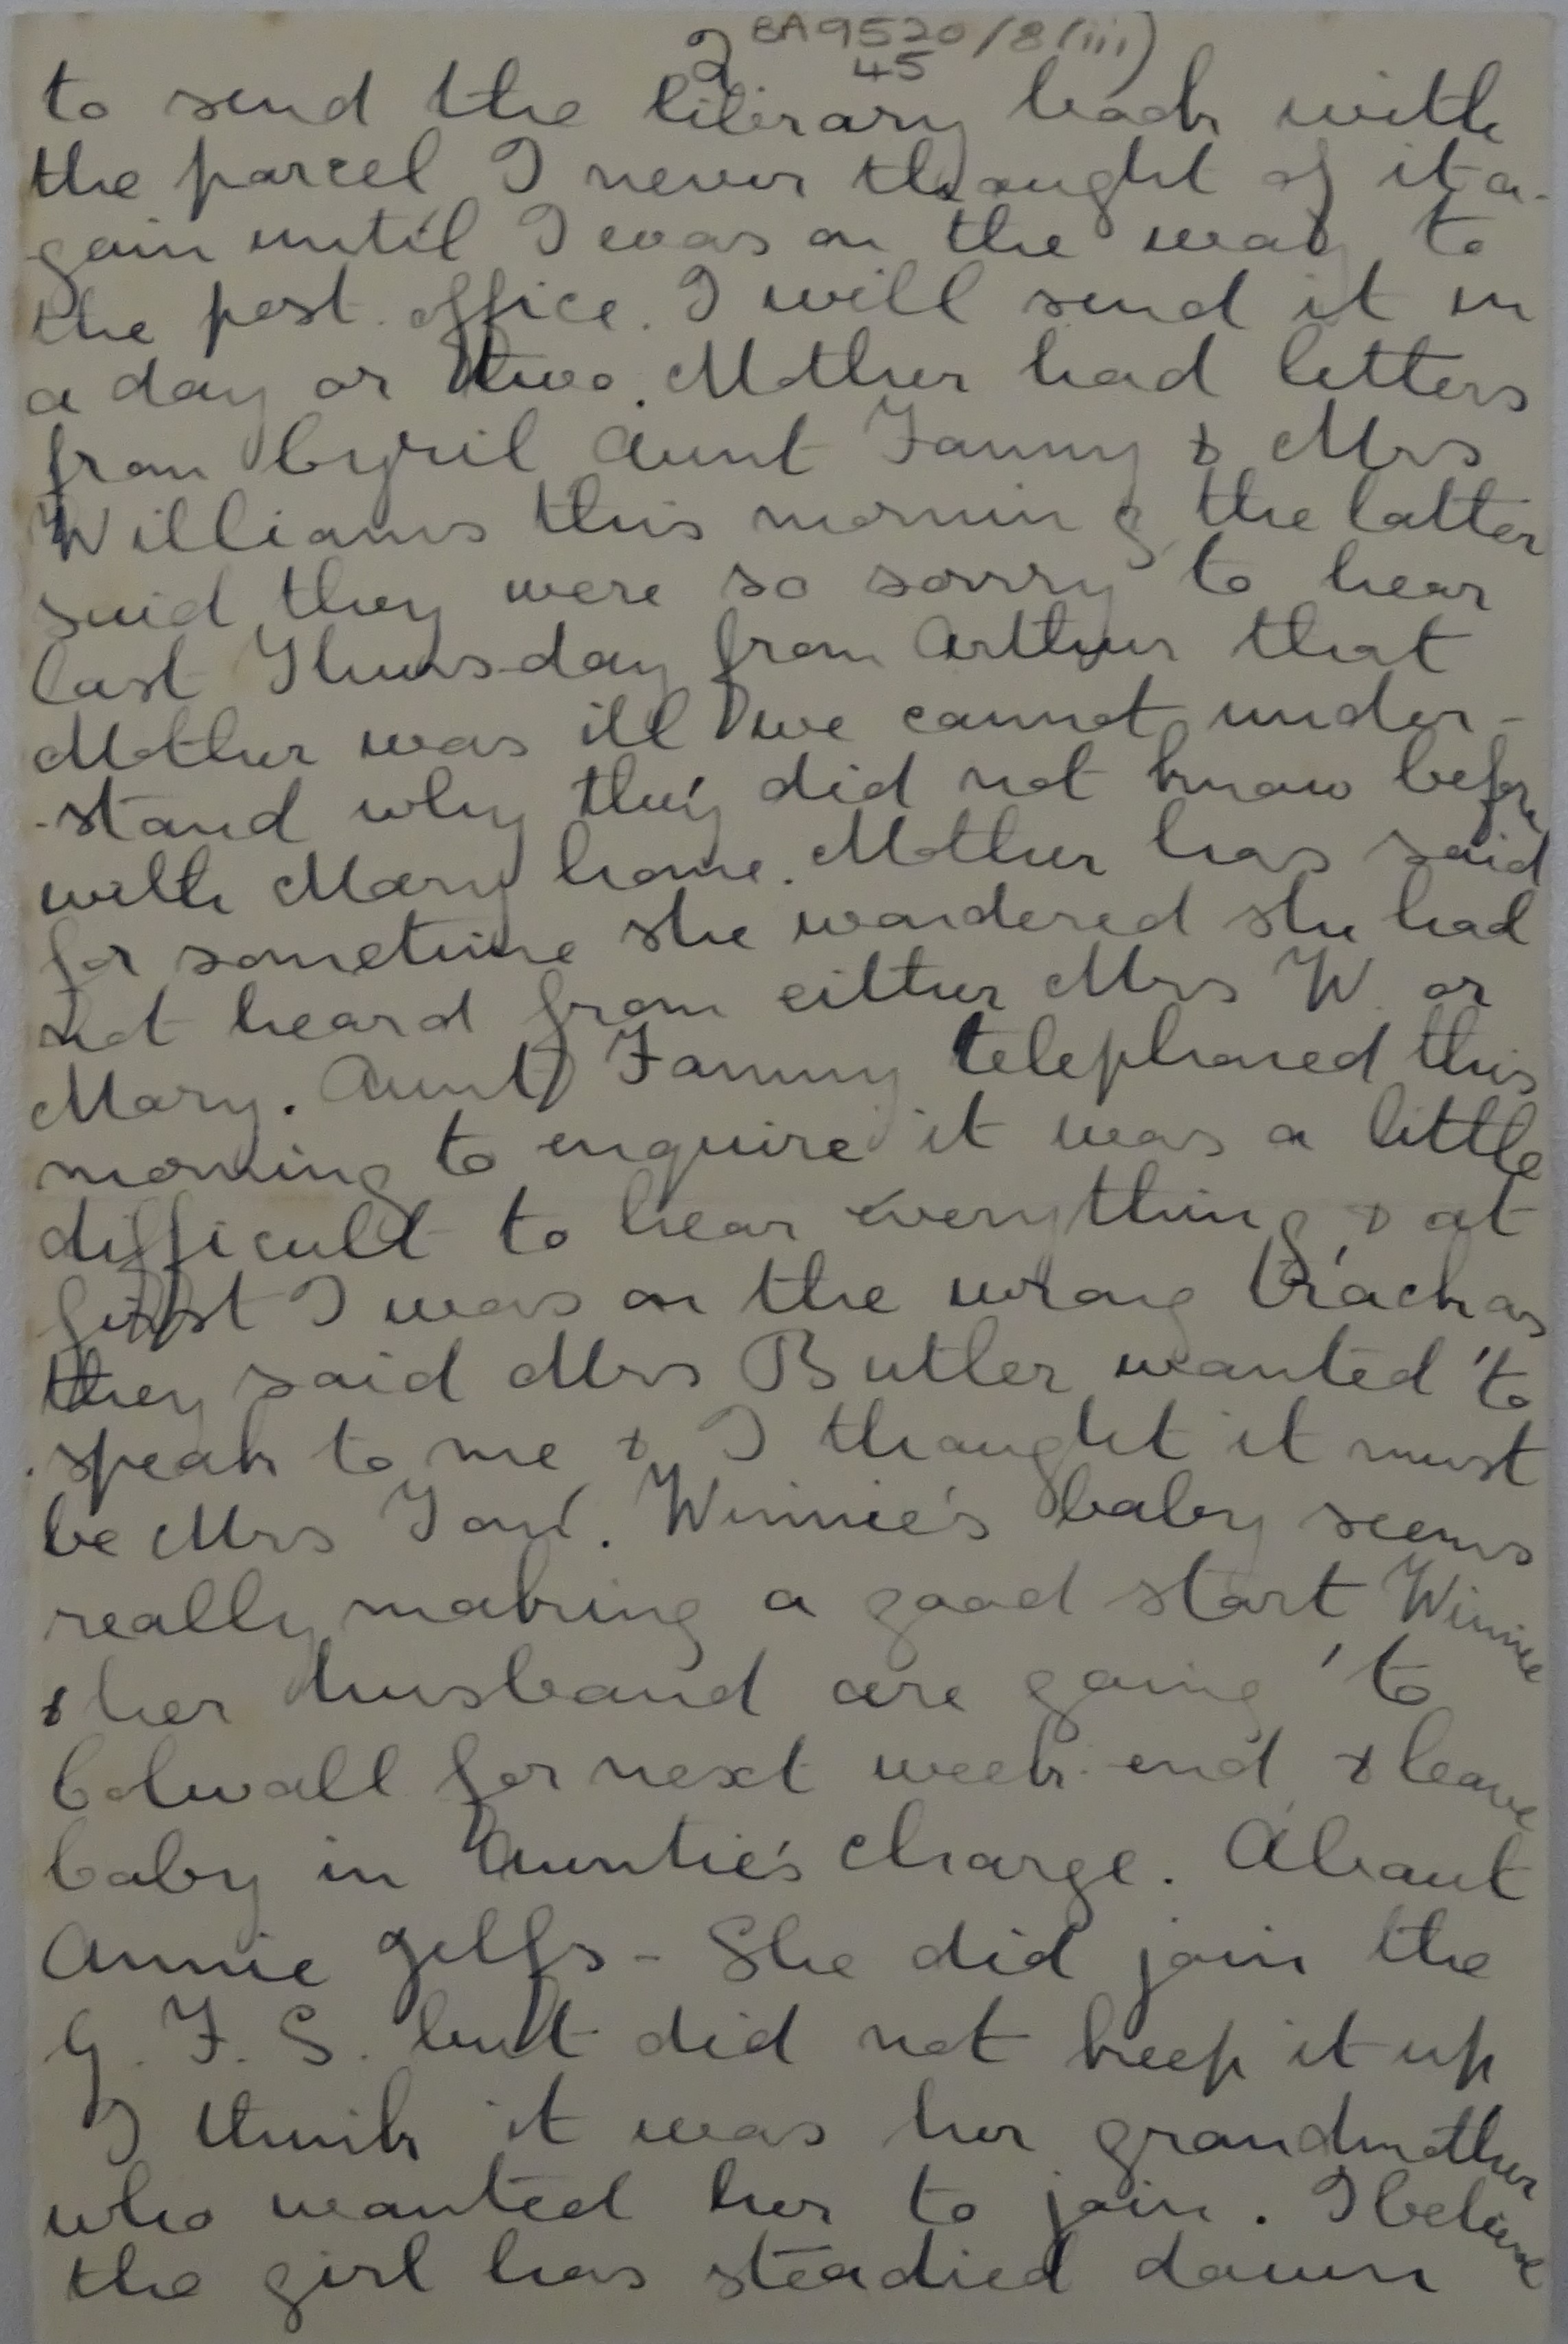 2 BA9520/8(iii)
45
to send the library back with
the parcel I never thought of it a-
gain until I was on the way to
the post office. I will send it in
a day or two. Mother had letters
from Cyril Aunt Fanny & Mrs
Williams this morning the latter
said they were so sorry to hear
last Thursday from Arthur that
Mother was ill we cannot under-
-stand why they did not know before
with Mary home. Mother has said
for sometime she wondered she had
not heard from either Mrs W. or
Mary. Aunt Fanny telephoned this
morning to enquire it was a little
difficult to hear everything & at
first I was on the wrong track as
they said Mrs Butler wanted to
speak to me & I thought it must
be Mrs Tom. Winnie's baby seems
really making a good start Winnie
& her husband are going to
Colwall for next week-end & leave
baby in Auntie's charge. About
Annie Gelfs - She did join the
G. F. S. but did not keep it up
I think it was her grandmother
who wanted her to join. I believe
the girl has steadied down